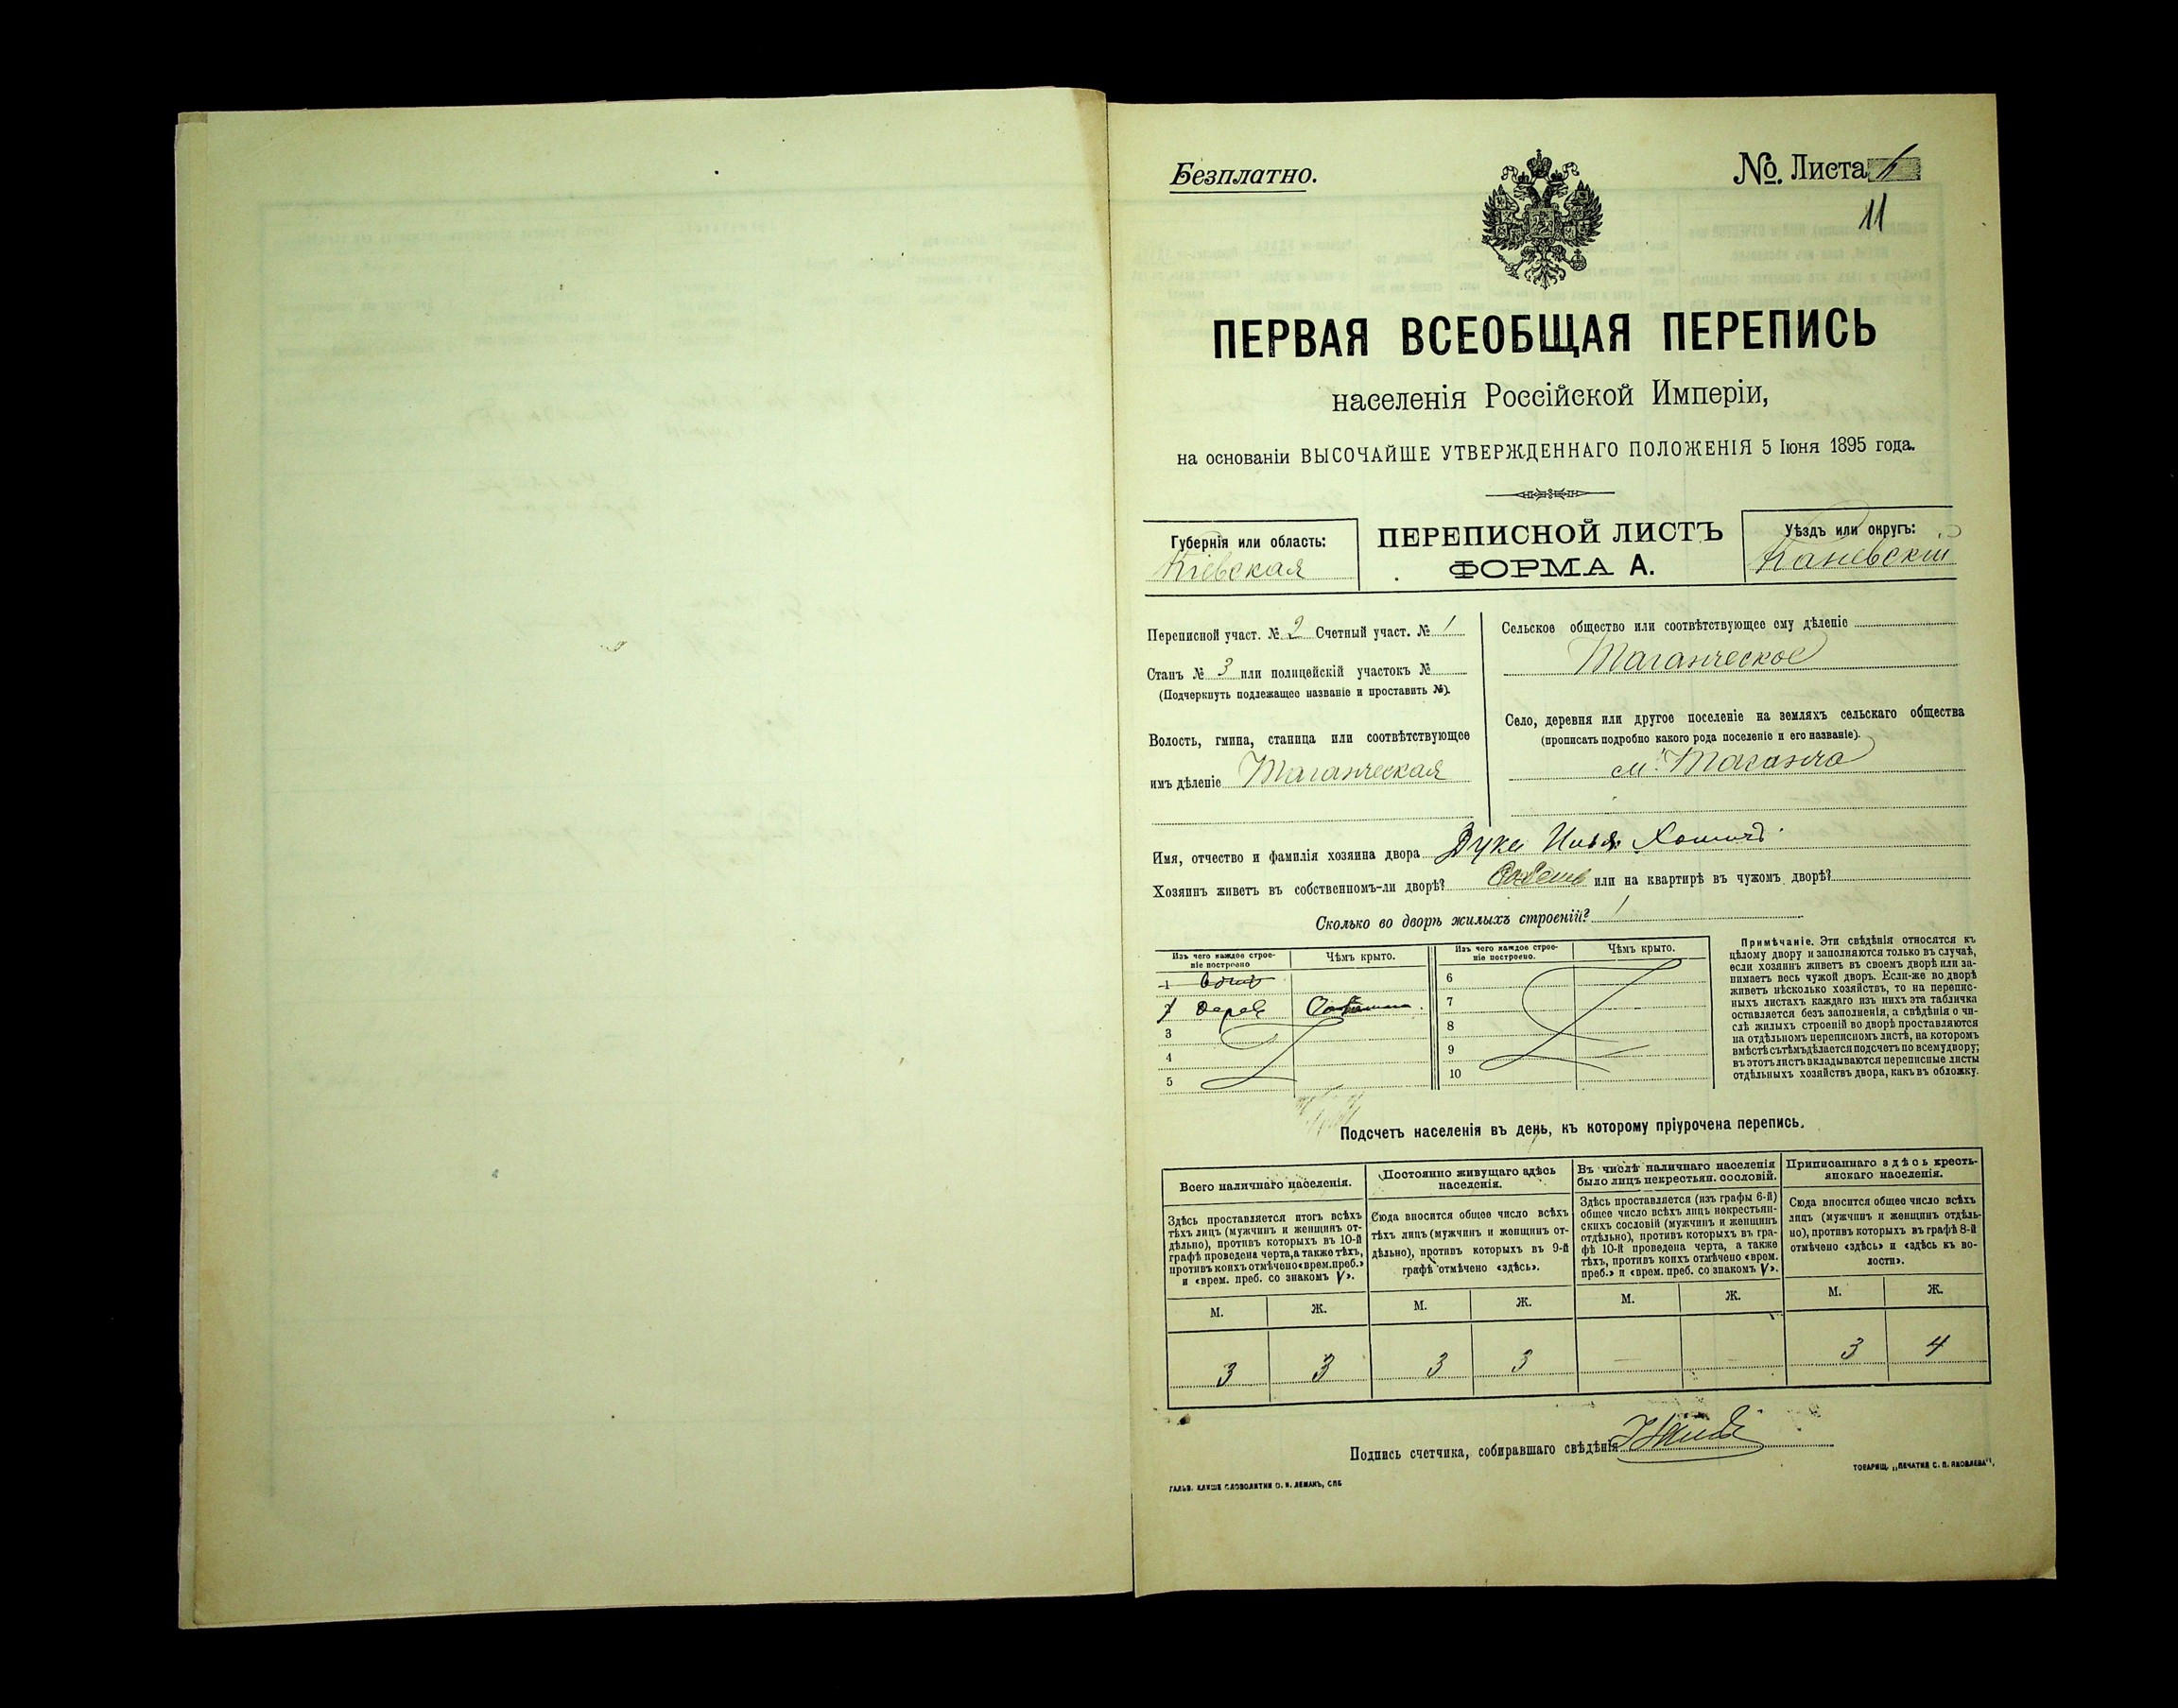 Безплатно.
№. Листа
11
ПЕРВАЯ ВСЕОБЩАЯ ПЕРЕПИСЬ
населенія Россійской Имперіи,
на основаніи ВЫСОЧАЙШЕ УТВЕРЖДЕННАГО ПОЛОЖЕНІЯ 5 Іюня 1895 года.
Губернія или область:
Кіевская
ПЕРЕПИСНОЙ ЛИСТЪ
ФОРМА А.
Уѣздъ или округъ:
Каневскій
Переписной участ. № 2 Счетный участ. № 1
Станъ № 3 или полицейскій участокъ №
(Подчеркнуть подлежащее названіе и проставить №).
Волость, гмина, станица или соотвѣтствующее
имъ дѣленіе Таганческая
Сельское общество или соотвѣтствующее ему дѣленіе
Таганческое
Село, деревня или другое поселеніе на земляхъ сельскаго общества
(прописать подробно какого рода поселеніе и его названіе).
м. Таганча
Имя, отчество и фамилія хозяина двора Дука Илья
Хозяинъ живетъ въ собственномъ-ли дворѣ? или на квартирѣ въ чужомъ дворѣ?
Сколько во дворѣ жилыхъ строеній? 1
Изъ чего каждое строе-
ніе построено
Чѣмъ крыто.
1
1 дерев
3
4
5
Изъ чего каждое строе-
ніе построено.
Чѣмъ крыто.
6
7
8
9
10
Примѣчаніе. Эти свѣдѣнія относятся къ
цѣлому двору и заполняются только въ случаѣ,
если хозяинъ живетъ въ своемъ дворѣ или за-
нимаетъ весь чужой дворъ. Если-же во дворѣ
живетъ нѣсколько хозяйствъ, то на перепис-
ныхъ листахъ каждаго изъ нихъ эта табличка
оставляется безъ заполненія, а свѣдѣнія о чи-
слѣ жилыхъ строеній во дворѣ проставляются
на отдѣльномъ переписномъ листѣ, на которомъ
вмѣстѣ съ тѣмъ дѣлается подсчетъ по всему двору;
въ этотъ листъ вкладываются переписные листы
отдѣльныхъ хозяйствъ двора, какъ въ обложку.
Подсчетъ населенія въ день, къ которому пріурочена перепись.
Всего наличнаго населенія.
Здѣсь проставляется итогъ всѣхъ
тѣхъ лицъ (мужчинъ и женщинъ от-
дѣльно), противъ которыхъ въ 10-й
графѣ проведена черта, а также тѣхъ,
противъ коихъ отмѣчено «врем. преб.»
и «врем. преб. со знакомъ V».
Постоянно живущаго здѣсь
населенія.
Сюда вносится общее число всѣхъ
тѣхъ лицъ (мужчинъ и женщинъ от-
дѣльно), противъ которыхъ въ 9-й
графѣ отмѣчено «здѣсь».
Въ числѣ наличнаго населенія
было лицъ некрестьян. сословій.
Здѣсь проставляется (изъ графы 6-й)
общее число всѣхъ лицъ некрестьян-
скихъ сословій (мужчинъ и женщинъ
отдѣльно), противъ которыхъ въ гра-
фѣ 10-й проведена черта, а также
тѣхъ, противъ коихъ отмѣчено «врем.
преб.» и «врем. преб. со знакомъ V».
Приписаннаго здѣсь кресть-
янскаго населенія.
Сюда вносится общее число всѣхъ
лицъ (мужчинъ и женщинъ отдѣль-
но), противъ которыхъ въ графѣ 8-й
отмѣчено «здѣсь» и «здѣсь къ во-
лости».
М. Ж. М. Ж. М. Ж. М. Ж.
3 3 3 3 — — 3 4
Подпись счетчика, собиравшаго свѣдѣнія
ГАЛЬВ. КЛИШЕ СЛОВОЛИТНИ О. И. ЛЕМАНЪ, СПБ
ТОВАРИЩ. „ПЕЧАТНЯ С. П. ЯКОВЛЕВА".